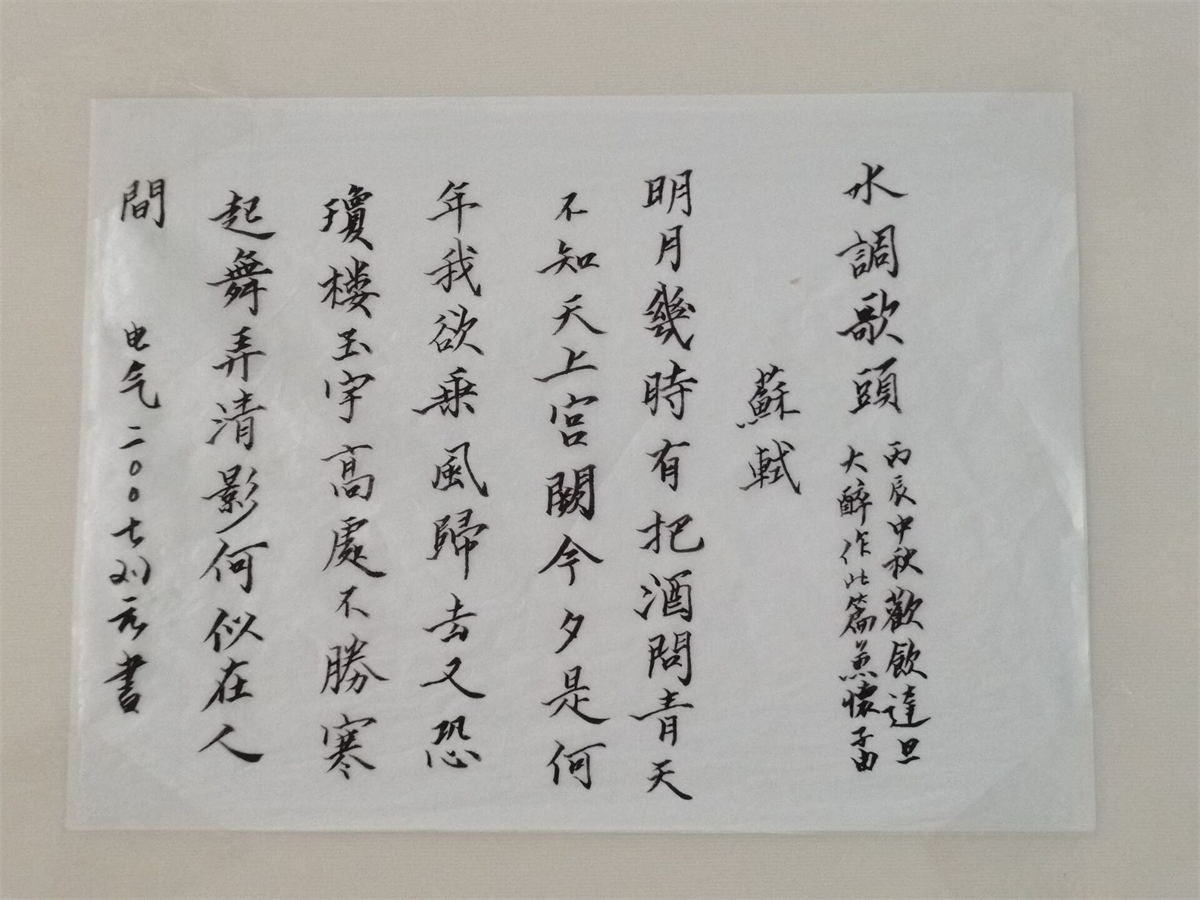 水調歌頭
丙辰中秋歡飲達旦
大醉作此篇兼懷子由
蘇軾
明月幾時有把酒問青天
不知天上宮闕今夕是何
年我欲乗風歸去又恐
瓊楼玉宇高處不勝寒
起舞弄清影何似在人
間
电气二00七刘云書